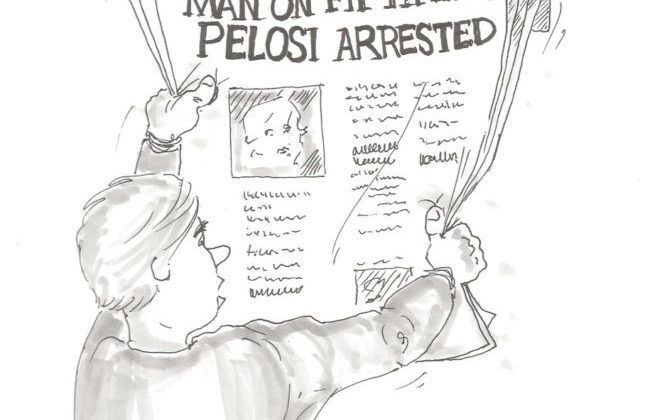 MAN ON
PELOSI ARRESTED